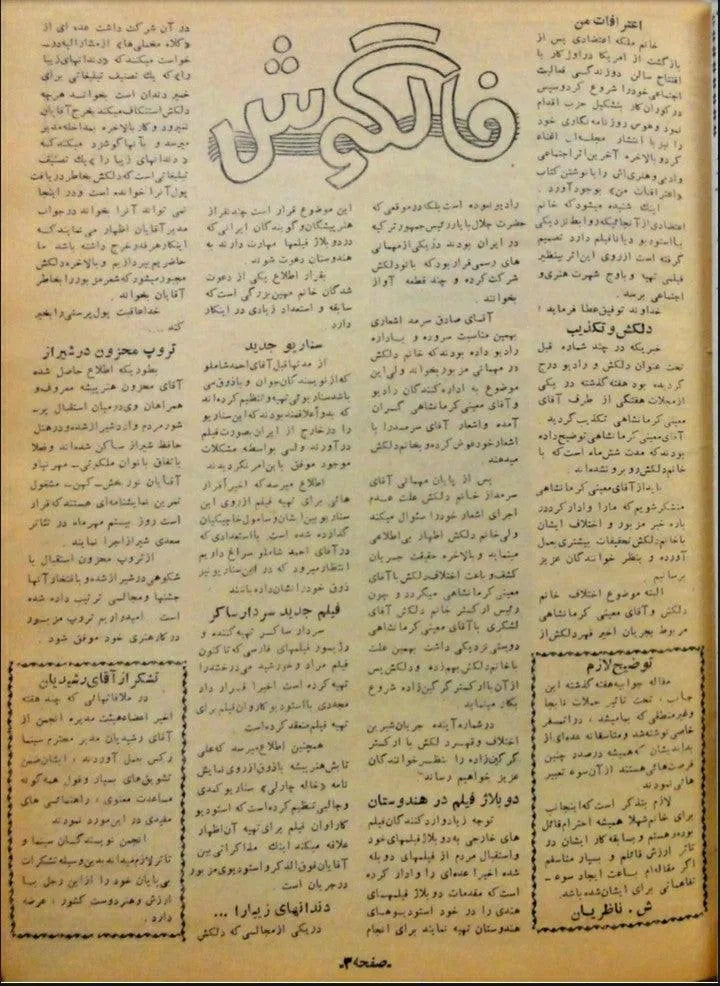 فالگوش
اعترافات من
خانم ملکه اعتضادی پس از
بازگشت از امریکا در اول کار با
افتتاح سالن دوزندگی فعالیت
اجتماعی خود را شروع کرد و سپس
در کوران کار بتشکیل حزب اقدام
نمود و هوس روزنامه نگاری خود
را نیز با انتشار مجله‌ای اغناء
کرد و بالاخره آخرین اثر اجتماعی
وادبی و هنری‌اش را با نوشتن کتاب
«اعترافات من» بوجود آورد.
اینک شنیده میشود که خانم
اعتضادی از آنجائیکه روابط نزدیکی
با استودیو دیانا فیلم دارد تصمیم
گرفته است از روی این اثر بینظیر
فیلمی تهیه و باوج شهرت هنری و
اجتماعی برسد.
خداوند توفیق عطا فرماید!
دلکش و تکذیب
خبریکه در چند شماره قبل
تحت عنوان دلکش و رادیو درج
گردیده بود هفته گذشته در یکی
از مجلات هفتگی از طرف آقای
معینی کرمانشاهی تکذیب گردید.
آقای معینی کرمانشاهی توضیح داده
بودند که مدت شش ماه است که با
خانم دلکش روبرو نشده‌اند
باید از آقای معینی کرمانشاهی
متشکر شویم که ما را وادار کرد در
باره خبر مزبور و اختلاف ایشان
با خانم دلکش تحقیقات بیشتری بعمل
آورده و بنظر خوانندگان عزیز
برسانیم.
البته موضوع اختلاف خانم
دلکش و آقای معینی کرمانشاهی
مربوط بجریان اخیر قهر دلکش از
توضیح لازم
مقاله جوابیه هفته گذشته این
جانب، تحت تاثیر حملات نابجا
وغیر منطقی که بیامیشد، در اتمسفر
خاصی نوشته شد و متاسفانه عده‌ای از
بداندیشان که همیشه در صدد چنین
فرصت‌هائی هستند از آن سوء تعبیر
هائی نمودند
لازم بتذکر است که اینجانب
برای خانم شهلا همیشه احترام قائل
بوده و هستم و بسابقه کار ایشان در
تاتر ارزش قائلم و بسیار متاسفم
اگر مقاله‌ام باعث ایجاد سوء-
تفاهمانی برای ایشان شده باشد.
ش. ناظریان
رادیو نبوده است بلکه در موقعی که
حضرت جلال بایار رئیس جمهور ترکیه
در ایران بودند در یکی از مهمانی
های رسمی قرار بود که بانو دلکش
شرکت کرده و چند قطعه آواز
بخوانند.
آقای صادق سرمد اشعاری
بهمین مناسبت سروده و باداره
رادیو داده بودند که خانم دلکش
در مهمانی مزبور بخواند ولی این
موضوع به اداره کنندگان رادیو
و آقای معینی کرمانشاهی گران
آمده و اشعار آقای سرمد را با
اشعار خود عوض کرده و بخانم دلکش
میدهند
پس از پایان مهمانی آقای
سرمد از خانم دلکش علت عدم
اجرای اشعار خود را سئوال میکند
ولی خانم دلکش اظهار بی‌اطلاعی
مینماید و بالاخره حقیقت جریان
کشف و باعث اختلاف دلکش با آقای
معینی کرمانشاهی میگردد و چون
رئیس ارکستر خانم دلکش آقای
لشگری با آقای معینی کرمانشاهی
دوستی نزدیکی داشت بهمین علت
با خانم دلکش بهم زده و دلکش پس
از آن با ارکستر گرگین زاده شروع
بکار مینماید
در شماره آینده جریان شیرین
اختلاف و قهر دلکش با ارکستر
گرگین زاده را بنظر خوانندگان
عزیز خواهیم رساند
دوبلاژ فیلم در هندوستان
توجه زیاد وارد کنندگان فیلم
های خارجی به دوبلاژ فیلمهای خود
واستقبال مردم از فیلمهای دوبله
شده اخیرا عده‌ای را وادار کرده
است که مقدمات دوبلاژ فیلمهای
هندی را در خود استودیوهای
هندوستان تهیه نمایند برای انجام
این موضوع قرار است چند نفر از
هنرپیشگان و گویندگان ایرانی که
در دوبلاژ فیلمها مهارت دارند به
هندوستان دعوت شوند.
بقرار اطلاع یکی از دعوت
شدگان خانم مهین بزرگی است که
سابقه و استعداد زیادی در اینکار
دارد
سناریو جدید
از مدتها قبل آقای احمد شاملو
که از نویسندگان جوان و باذوق می
باشد سناریوئی تهیه و تنظیم کرده‌اند
که بدوا علاقمند بودند که این سناریو
را در خارج از ایران بصورت فیلم
در آورند ولی بواسطه مشکلات
موجود موفق باین امر نگردیدند
اطلاع میرسد که اخیرا قرار
هائی برای تهیه فیلم از روی این
سناریو بین ایشان و ساموئل خاچیکیان
گذارده شده است. با استعدادی که
در آقای احمد شاملو سراغ داریم
انتظار میرود که در این سناریو نیز
ذوق خود را نشان داده باشد
فیلم جدید سردار ساگر
سردار ساگر تهیه کننده و
رژیسور فیلمهای فارسی که تاکنون
فیلم مراد و خورشید میدرخشد را
تهیه کرده است اخیرا قرارداد
مجددی با استودیو کاروان فیلم برای
تهیه فیلم منعقد کرده است
همچنین اطلاع میرسد که علی
تابش هنرپیشه باذوق از روی نمایش
نامه «خاله چارلی» سناریو کمدی
وجالبی تنظیم کرده است که استودیو
کاراوان فیلم برای تهیه آن اظهار
علاقه میکند اینک مذاکراتی بین
آقایان فوق الذکر و استودیوی مزبور
در جریان است.
دندانهای زیبارا ...
در یکی از مجالسی که دلکش
در آن شرکت داشت عده‌ای از
«کلاه مخملی‌ها» از مشارالیه در-
خواست میکنند که «دندانهای زیبا
را» که یک تصنیف تبلیغاتی برای
خمیر دندان است بخواند هرچه
دلکش استنکاف میکند بخرج آقایان
نمیرود و کار بالاخره بمداخله مدیر
میرسد و بآنها گوشزد میکند که
«دندانهای زیبا را» یک تصنیف
تبلیغاتی است که دلکش بخاطر دریافت
پول آنرا خوانده است و در اینجا
نمی تواند آنرا بخواند در جواب
مدیر آقایان اظهار می‌نمایند که
اینکار هر قدر خرج داشته باشد ما
حاضریم بپردازیم و بالاخره دلکش
مجبور میشود که شعر مزبور را بخاطر
آقایان بخواند.
خدا عاقبت پول پرستی را بخیر
کند...
تروپ محزون در شیراز
بطوریکه اطلاع حاصل شده
آقای محزون هنرپیشه معروف و
همراهان وی در میان استقبال پر-
شور مردم وارد شیراز شده و در هتل
حافظ شیراز ساکن شده‌اند و فعلا
باتفاق بانوان ملکوتی- مهرنیا و
آقایان نوربخش- کهن- مشغول
تمرین نمایشنامه‌ای هستند که قرار
است روز بیستم مهرماه در تئاتر
سعدی شیراز اجرا نمایند.
از تروپ محزون استقبال با
شکوهی در شیراز شده و بافتخار آنها
جشنها و مجالسی ترتیب داده شده
است امیدواریم تروپ مزبور
در کار هنری خود موفق شود.
تشکر از آقای رشیدیان
در ملاقاتهائی که چند هفته
اخیر اعضاء هیئت مدیره انجمن از
آقای رشیدیان مدیر محترم سینما
رکس بعمل آوردند، ایشان ضمن
تشویق‌های بسیار وقول همه گونه
مساعدت معنوی، راهنمائی های
مفیدی در این مورد نمودند
انجمن نویسندگان سینما و
تاتر لازم میداند بدین وسیله تشکرات
بی پایان خود را از این رجل با
ارزش و هنردوست کشور، عرضه
دارد.
-صفحه ۳-